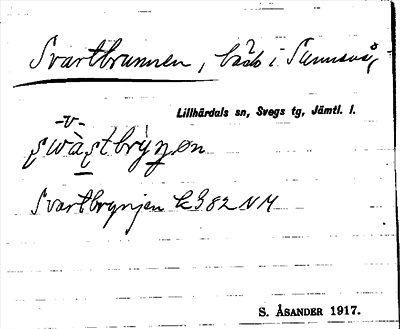 Svartbrunnen, bäck i Sunnanå
Lillhärdals sn, Svegs tg, Jämtl. l.
-v-
swàstbrỳŋen
Svartbrynjen k982 NM
S. ÅSANDER 1917.